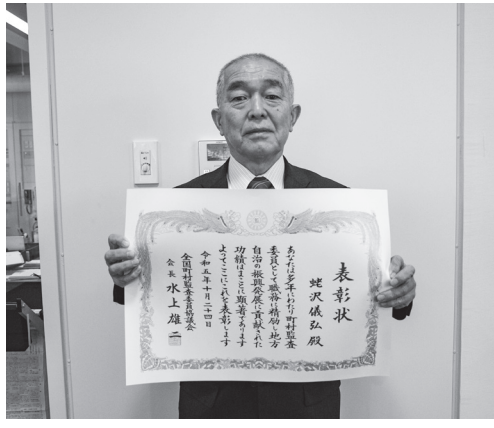 表彰状
蛯沢儀弘殿
あなたは多年にわたり町村監査
委員として職務に精励し地方
自治の振興発展に貢献された
功績はまことに顕著であります
よってここにこれを表彰します
令和五年十月二十四日
全国町村監査委員協議会
会長 水上雄二